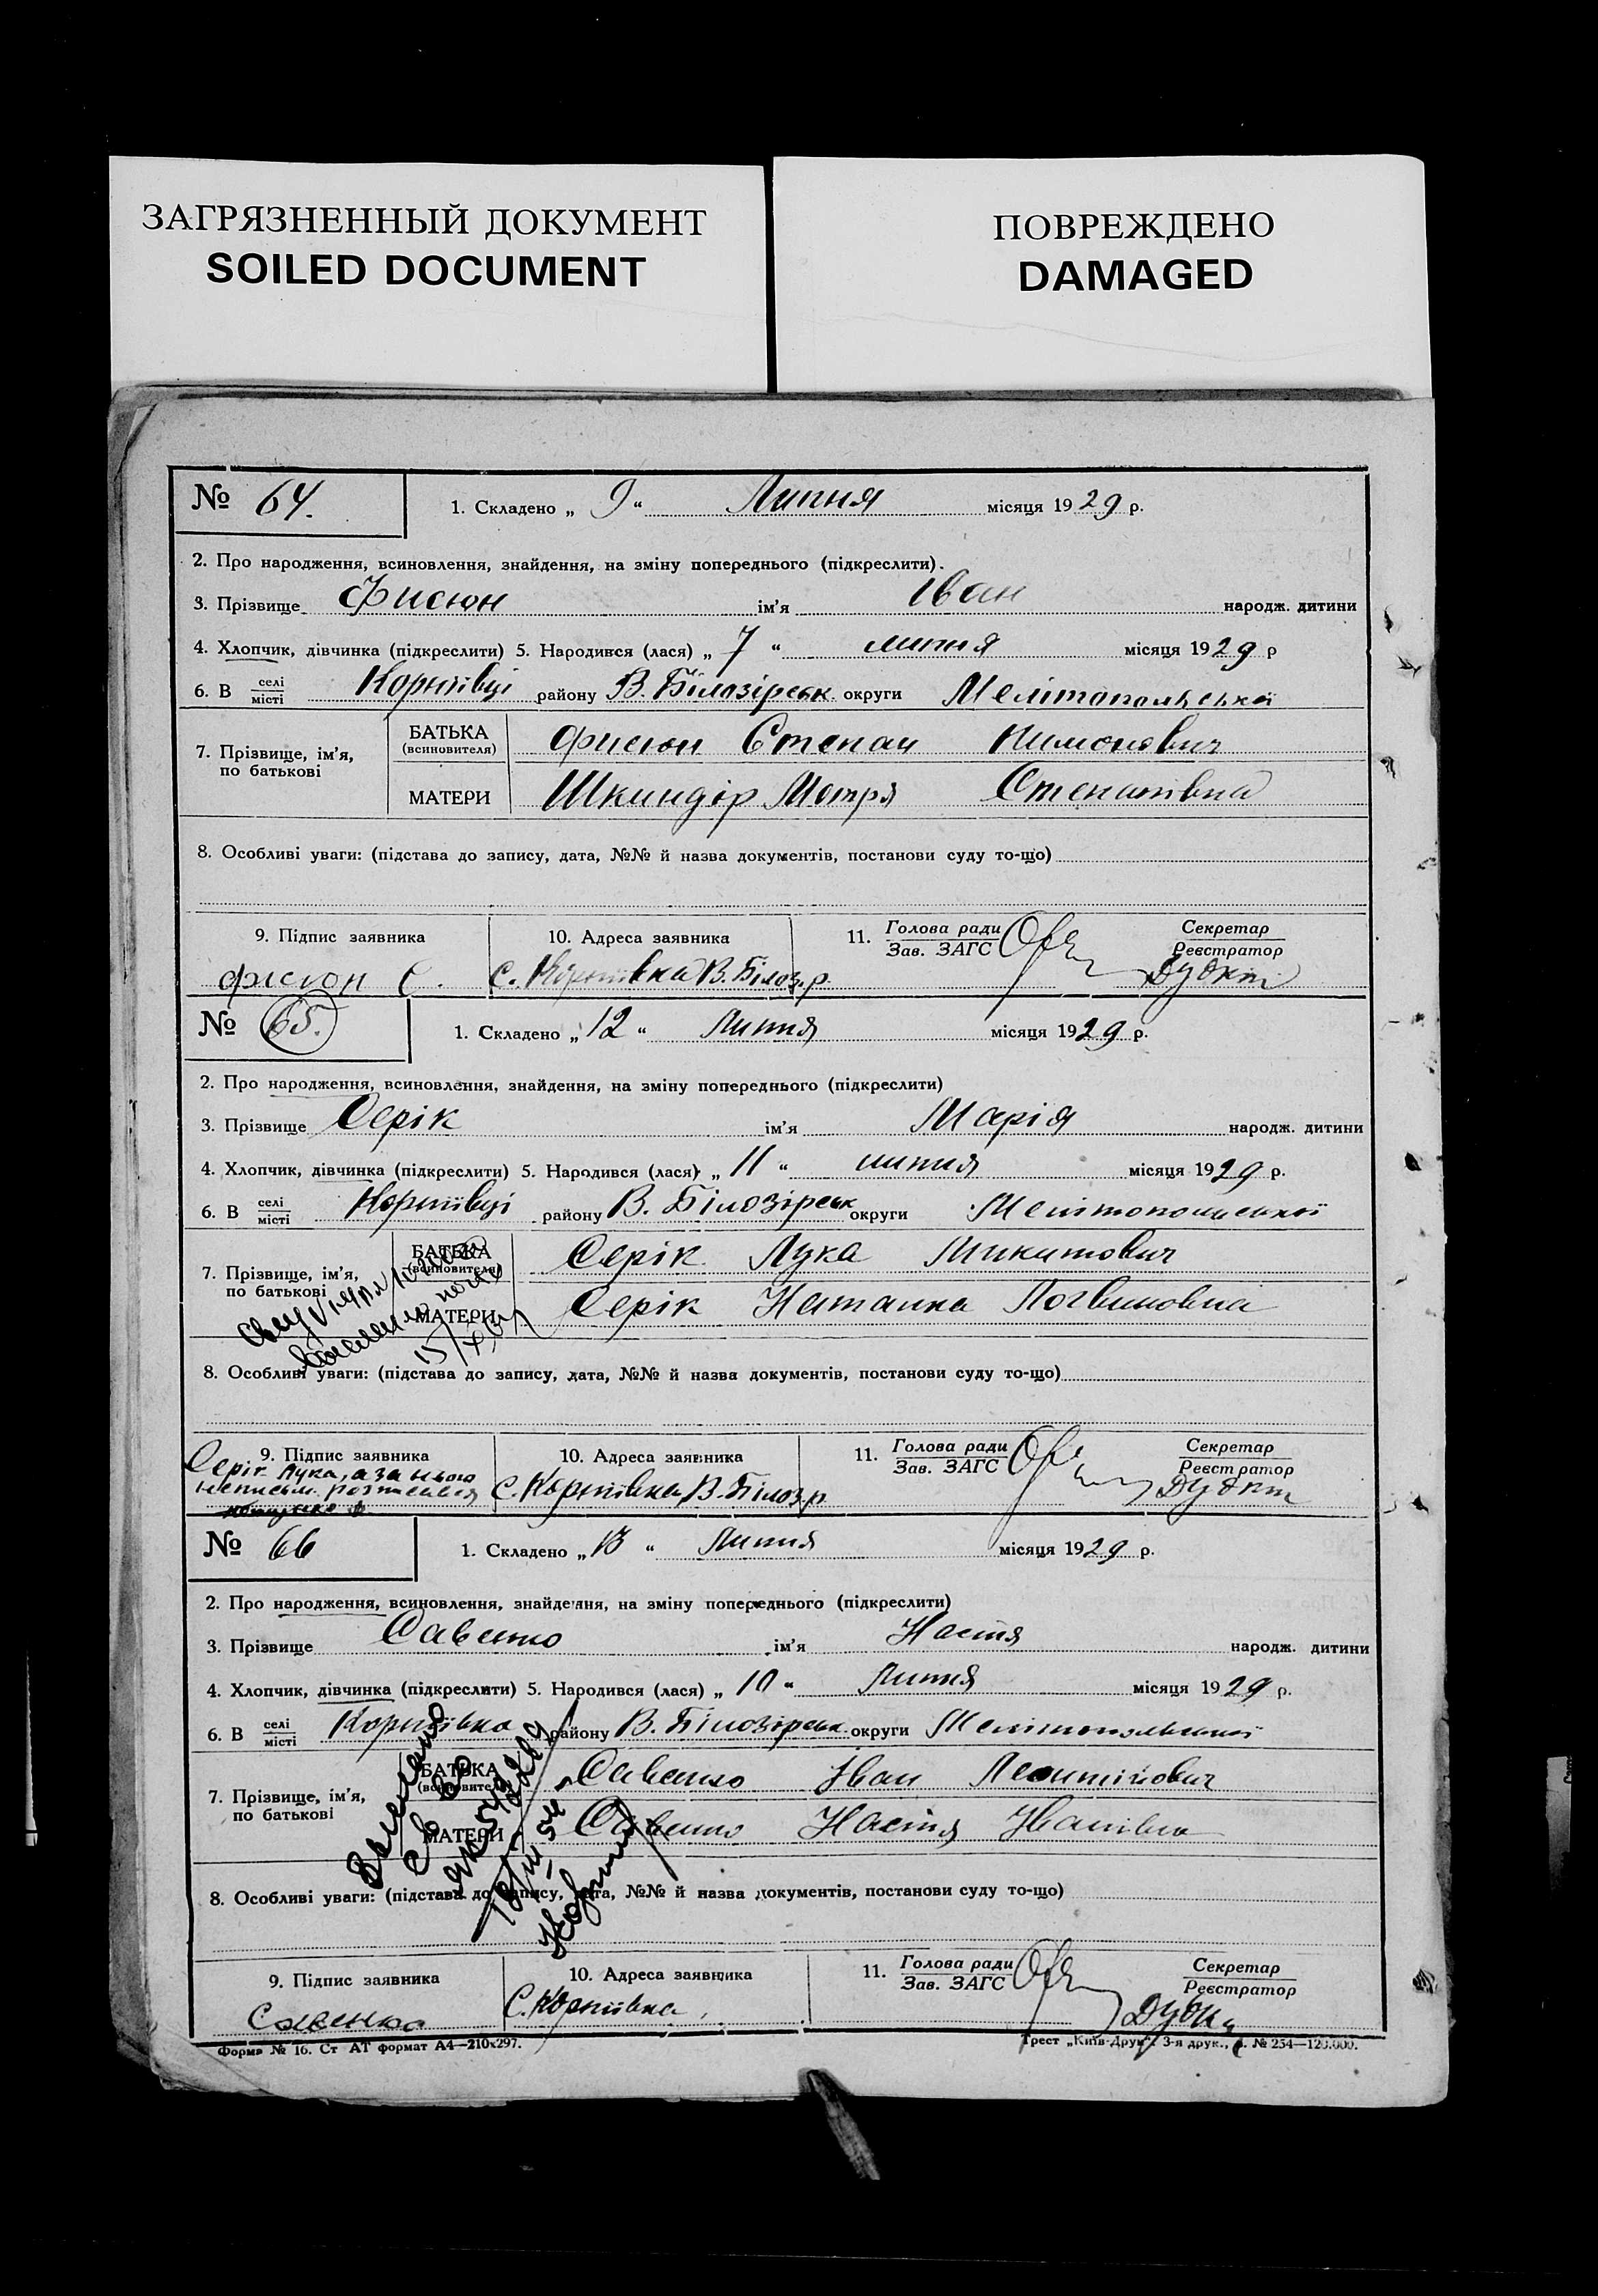 ЗАГРЯЗНЕННЫЙ ДОКУМЕНТ
SOILED DOCUMENT
ПОВРЕЖДЕНО
DAMAGED
№ 64.
1. Складено „ 9 “ Липня місяця 1929 р.
2. Про народження, всиновлення, знайдення, на зміну попереднього (підкреслити).
3. Прізвище Фисюн ім'я Іван народж. дитини
4. Хлопчик, дівчинка (підкреслити) 5. Народився (лася) „ 7 “ липня місяця 1929 р
6. В селі місті Корніївці району В. Білозірськ. округи Мелітопольської
7. Прізвище, ім'я, по батькові
БАТЬКА (всиновителя) Фисюн Степан Пимонович
МАТЕРИ Шкиндір Мотря Степанівна
8. Особливі уваги: (підстава до запису, дата, №№ й назва документів, постанови суду то-що)
9. Підпис заявника
10. Адреса заявника
11. Голова ради Зав. ЗАГС
Секретар Реєстратор
Фисюн С. с. Корніївка В. Білоз. р.
№ 65.
1. Складено „ 12 “ Липня місяця 1929 р.
2. Про народження, всиновлення, знайдення, на зміну попереднього (підкреслити)
3. Прізвище Серік ім'я Марія народж. дитини
4. Хлопчик, дівчинка (підкреслити) 5. Народився (лася) „ 11 “ липня місяця 1929 р.
6. В селі місті Корніївці району В. Білозірськ округи Мелітопольської
7. Прізвище, ім'я, по батькові
БАТЬКА (всиновителя) Серік Лука Микитович
МАТЕРИ Серік Наталка Логвиновна
8. Особливі уваги: (підстава до запису, дата, №№ й назва документів, постанови суду то-що)
9. Підпис заявника
10. Адреса заявника
11. Голова ради Зав. ЗАГС
Секретар Реєстратор
Серік Лука, а за нього
неписьм. розписався
с. Корніївка, В. Білоз. р
№ 66
1. Складено „ 13 “ Липня місяця 1929 р.
2. Про народження, всиновлення, знайдення, на зміну попереднього (підкреслити)
3. Прізвище Савенко ім'я Настя народж. дитини
4. Хлопчик, дівчинка (підкреслити) 5. Народився (лася) „ 10 “ Липня місяця 1929 р.
6. В селі місті Корніївка району В. Білозірськ. округи Мелітопольської
7. Прізвище, ім'я, по батькові
БАТЬКА (всиновителя) Савенко Іван
МАТЕРИ Савенко Настя Іванівна
8. Особливі уваги: (підстава до запису, дата, №№ й назва документів, постанови суду то-що)
9. Підпис заявника
10. Адреса заявника
11. Голова ради Зав. ЗАГС
Секретар Реєстратор
Савенко с. Корніївка
Форма № 16. Ст АТ формат А4—210х297.
Трест „Київ-Друк“. 3-я друк., № 254—120.000.